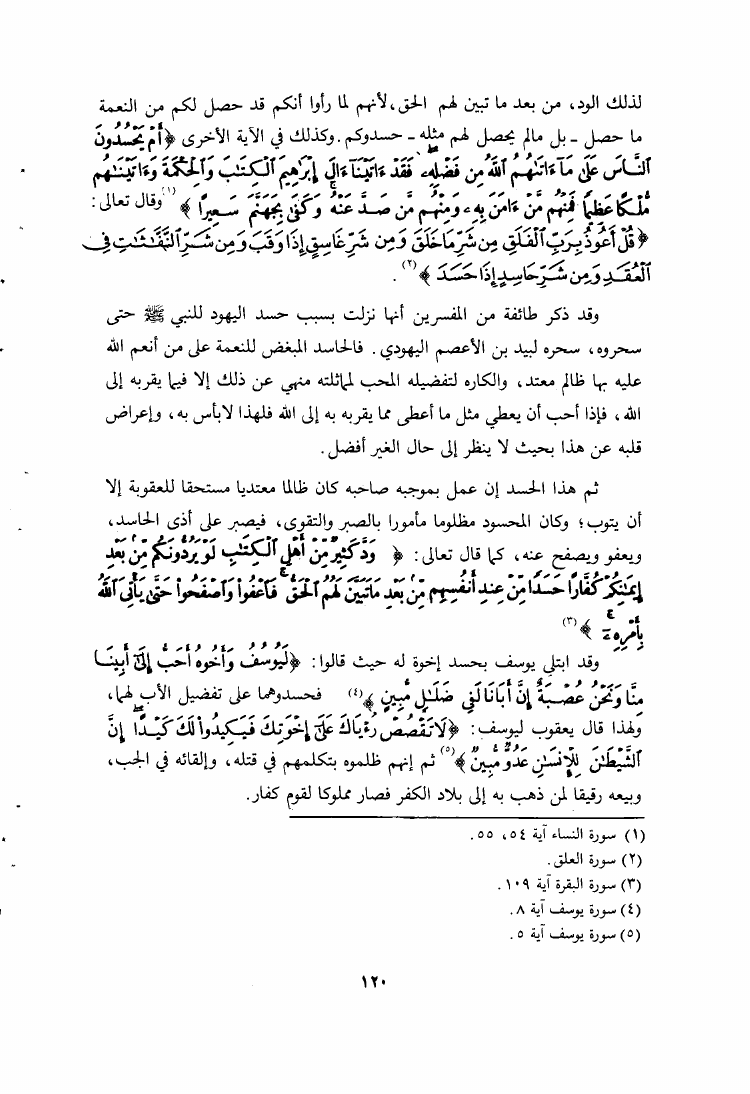 لذلك الود، من بعد ما تبين لهم الحق، لأنهم لما رأوا أنكم قد حصل لكم من النعمة
ما حصل ـ بل مالم يحصل لهم مثله ـ حسدوكم. وكذلك في الآية الأخرى ﴿أَمْ يَحْسُدُونَ
ٱلنَّاسَ عَلَىٰ مَآ ءَاتَىٰهُمُ ٱللَّهُ مِن فَضْلِهِۦ فَقَدْ ءَاتَيْنَآ ءَالَ إِبْرَٰهِيمَ ٱلْكِتَٰبَ وَٱلْحِكْمَةَ وَءَاتَيْنَٰهُم
مُّلْكًا عَظِيمًا فَمِنْهُم مَّنْ ءَامَنَ بِهِۦ وَمِنْهُم مَّن صَدَّ عَنْهُ وَكَفَىٰ بِجَهَنَّمَ سَعِيرًا﴾ (١) وقال تعالى:
﴿قُلْ أَعُوذُ بِرَبِّ ٱلْفَلَقِ مِن شَرِّ مَا خَلَقَ وَمِن شَرِّ غَاسِقٍ إِذَا وَقَبَ وَمِن شَرِّ ٱلنَّفَّٰثَٰتِ فِى
ٱلْعُقَدِ وَمِن شَرِّ حَاسِدٍ إِذَا حَسَدَ﴾ (٢).
وقد ذكر طائفة من المفسرين أنها نزلت بسبب حسد اليهود للنبي ﷺ حتى
سحروه، سحره لبيد بن الأعصم اليهودي. فالحاسد المبغض للنعمة على من أنعم الله
عليه بها ظالم معتد، والكاره لتفضيله المحب لمماثلته منهي عن ذلك إلا فيما يقربه إلى
الله، فإذا أحب أن يعطي مثل ما أعطى مما يقربه به إلى الله فلهذا لابأس به، وإعراض
قلبه عن هذا بحيث لا ينظر إلى حال الغير أفضل.
ثم هذا الحسد إن عمل بموجبه صاحبه كان ظالما معتديا مستحقا للعقوبة إلا
أن يتوب؛ وكان المحسود مظلوما مأمورا بالصبر والتقوى، فيصبر على أذى الحاسد،
ويعفو ويصفح عنه، كما قال تعالى: ﴿وَدَّ كَثِيرٌ مِّنْ أَهْلِ ٱلْكِتَٰبِ لَوْ يَرُدُّونَكُم مِّنۢ بَعْدِ
إِيمَٰنِكُمْ كُفَّارًا حَسَدًا مِّنْ عِندِ أَنفُسِهِم مِّنۢ بَعْدِ مَا تَبَيَّنَ لَهُمُ ٱلْحَقُّ فَٱعْفُوا۟ وَٱصْفَحُوا۟ حَتَّىٰ يَأْتِىَ ٱللَّهُ
بِأَمْرِهِۦٓ﴾ (٣)
وقد ابتلي يوسف بحسد إخوة له حيث قالوا: ﴿لَيُوسُفُ وَأَخُوهُ أَحَبُّ إِلَىٰٓ أَبِينَا
مِنَّا وَنَحْنُ عُصْبَةٌ إِنَّ أَبَانَا لَفِى ضَلَٰلٍ مُّبِينٍ﴾ (٤) فحسدوهما على تفضيل الأب لهما،
ولهذا قال يعقوب ليوسف: ﴿لَا تَقْصُصْ رُءْيَاكَ عَلَىٰٓ إِخْوَتِكَ فَيَكِيدُوا۟ لَكَ كَيْدًا إِنَّ
ٱلشَّيْطَٰنَ لِلْإِنسَٰنِ عَدُوٌّ مُّبِينٌ﴾ (٥) ثم إنهم ظلموه بتكلمهم في قتله، وإلقائه في الجب،
وبيعه رقيقا لمن ذهب به إلى بلاد الكفر فصار مملوكا لقوم كفار.
(١) سورة النساء آية ٥٤، ٥٥.
(٢) سورة العلق.
(٣) سورة البقرة آية ١٠٩.
(٤) سورة يوسف آية ٨.
(٥) سورة يوسف آية ٥.
١٢٠